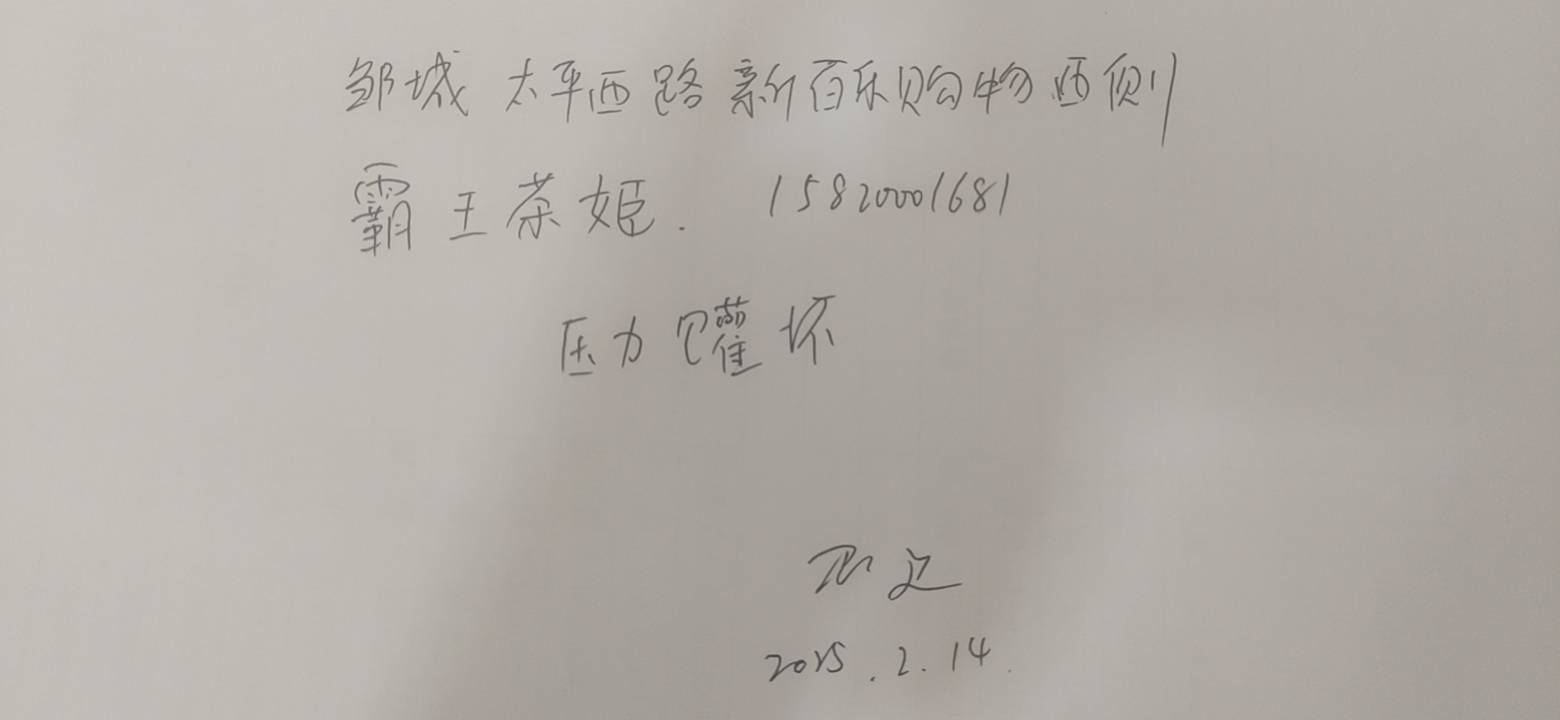 邹城 太平西路新百乐购物西侧
霸王茶姬. 15820001681
压力罐坏
2025.2.14.